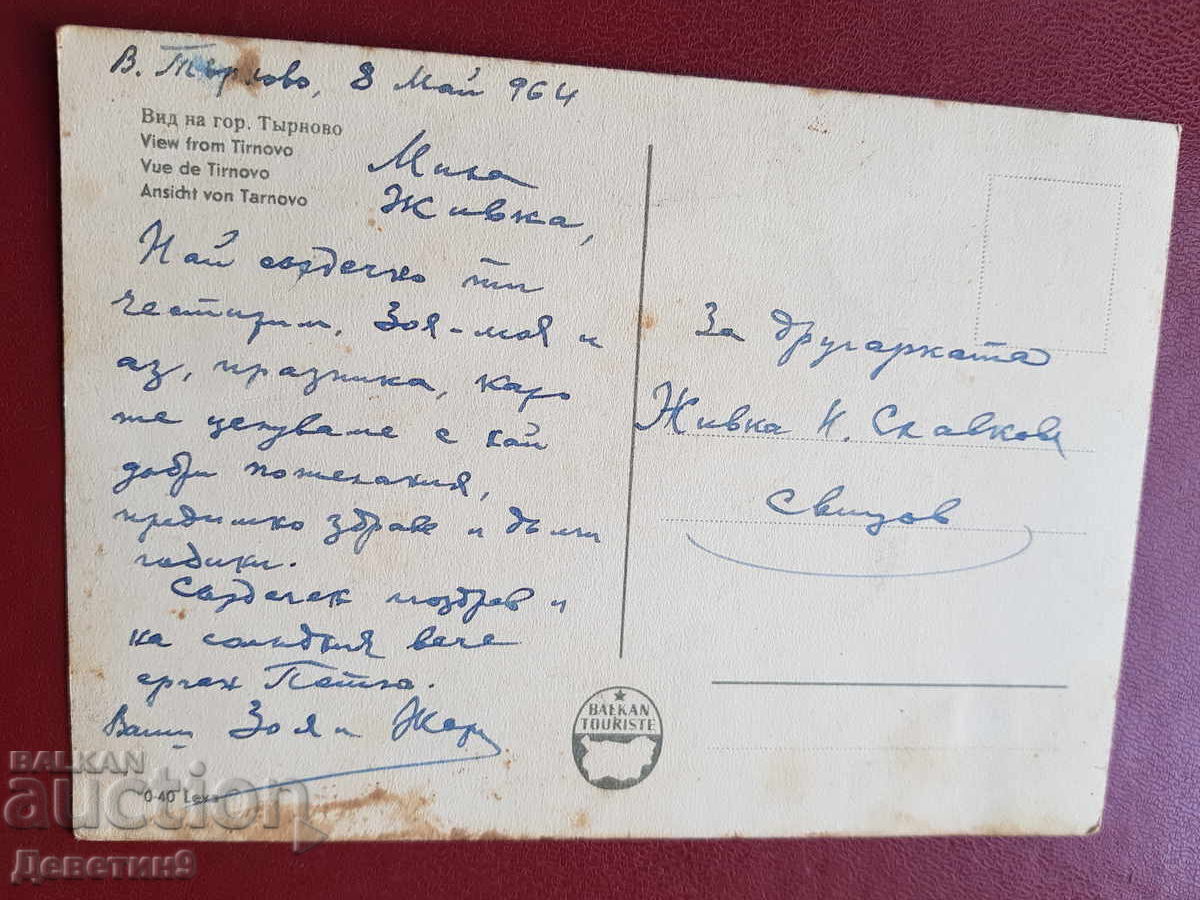 В. Търново, 8 Май 964
Вид на гор. Тырново
View from Tirnovo
Vue de Tirnovo
Ansicht von Tarnovo
Мила
Живка,
Най сърдечно ти
честитим, Зоя-моя и
аз, празника, като
те целуваме с най
добри пожелания,
предимно здраве и дълги
годики.
Сърдечен поздрав и
на солидния вече
ерген Петьо.
Ваши Зоя и
За другарката
Живка Н. Славкова
Свищов
BALKAN
TOURISTE
0·40 Лева
BALKAN
auction
Деветин9